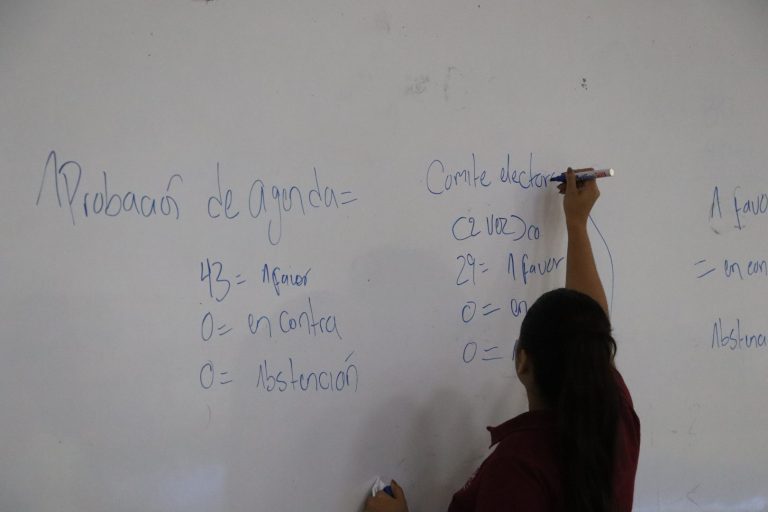 Aprobación de agenda=
43= Afavor
0= en contra
0= Abstención
Comite elector
(2 voz)
29= A favor
0= en
0=
A favo
= en con
Abstenc